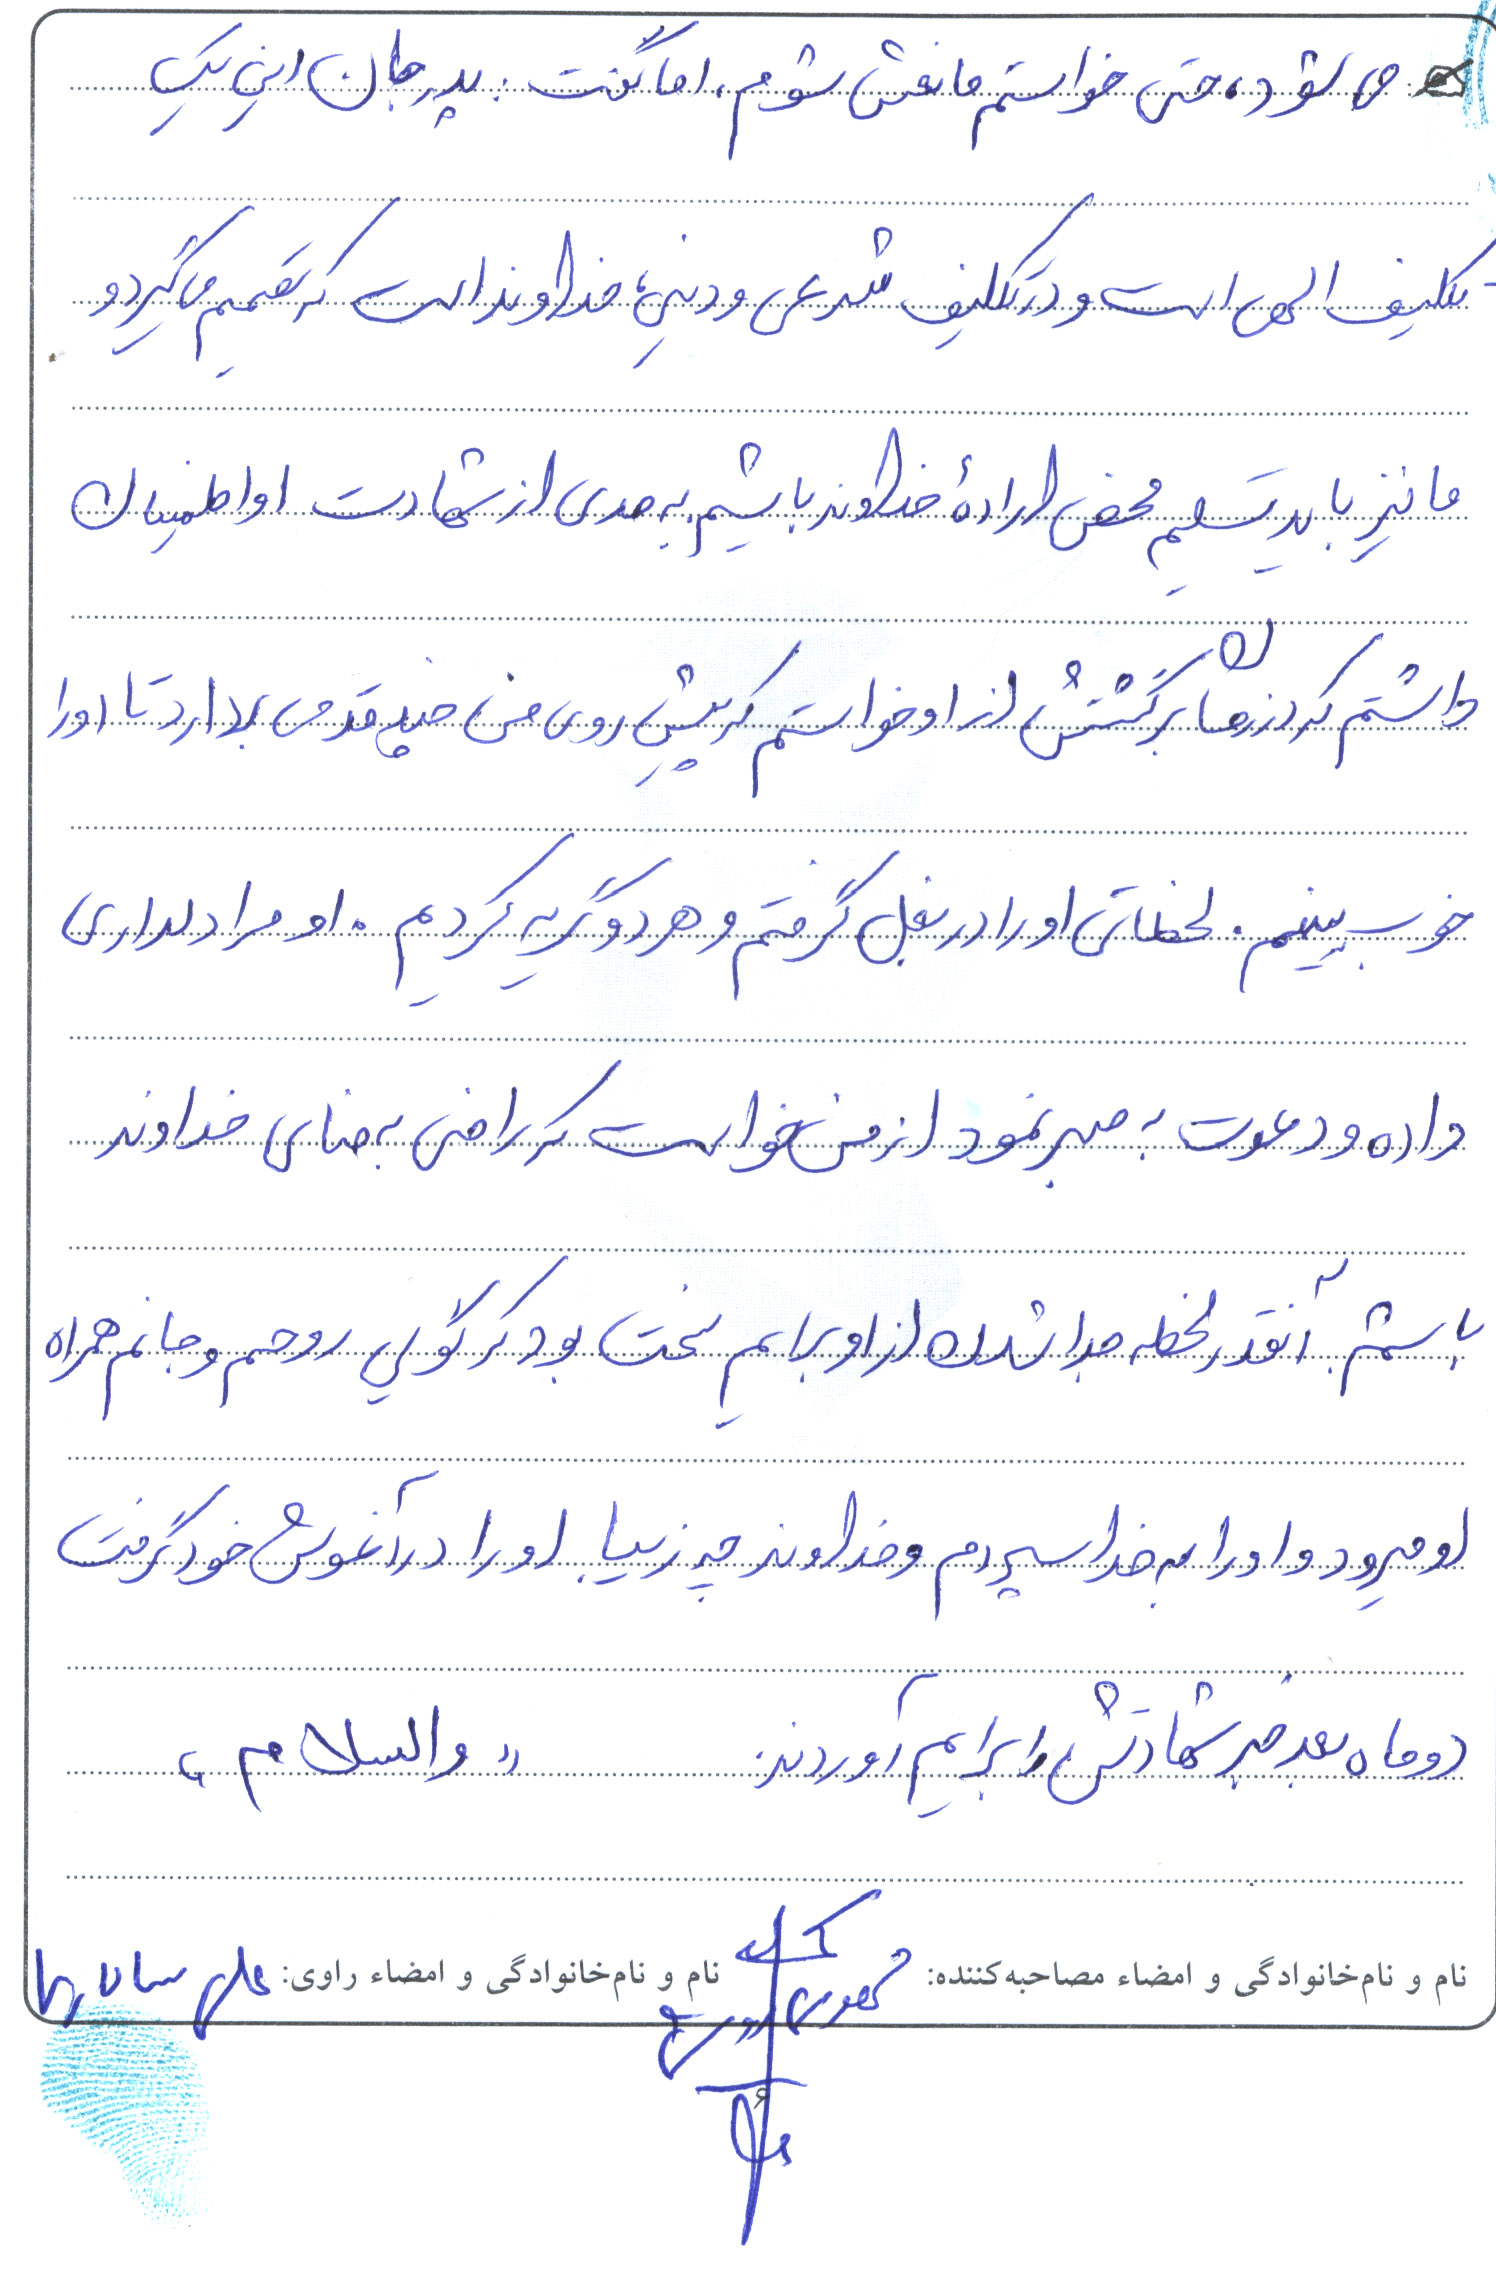 می شود، حتی خواستم مانعش شوم، اما گفت: پدر جان این یک
تکلیف الهی است و در تکلیف شرعی و دینی، خداوند است که تصمیم می گیرد و
ما نیز باید تسلیم محض ارادهٔ خداوند باشیم. به حدی از شهادت او اطمینان
داشتم که در زمان برگشتش از او خواستم که پیش روی من چند قدمی بردارد تا او را
خوب ببینم. لحظاتی او را در بغل گرفتم و هر دو گریه کردیم. او مرا دلداری
داده و دعوت به صبر نمود از من خواست که راضی به رضای خداوند
باشم. آنقدر لحظه جدا شدن از او برایم سخت بود که گویی روحم و جانم همراه
او میرود و او را به خدا سپردم و خداوند چه زیبا او را در آغوش خود گرفت
دو ماه بعد خبر شهادتش را برایم آوردند. «والسلام»
نام و نام‌خانوادگی و امضاء مصاحبه‌کننده: نام و نام‌خانوادگی و امضاء راوی: علی
۶